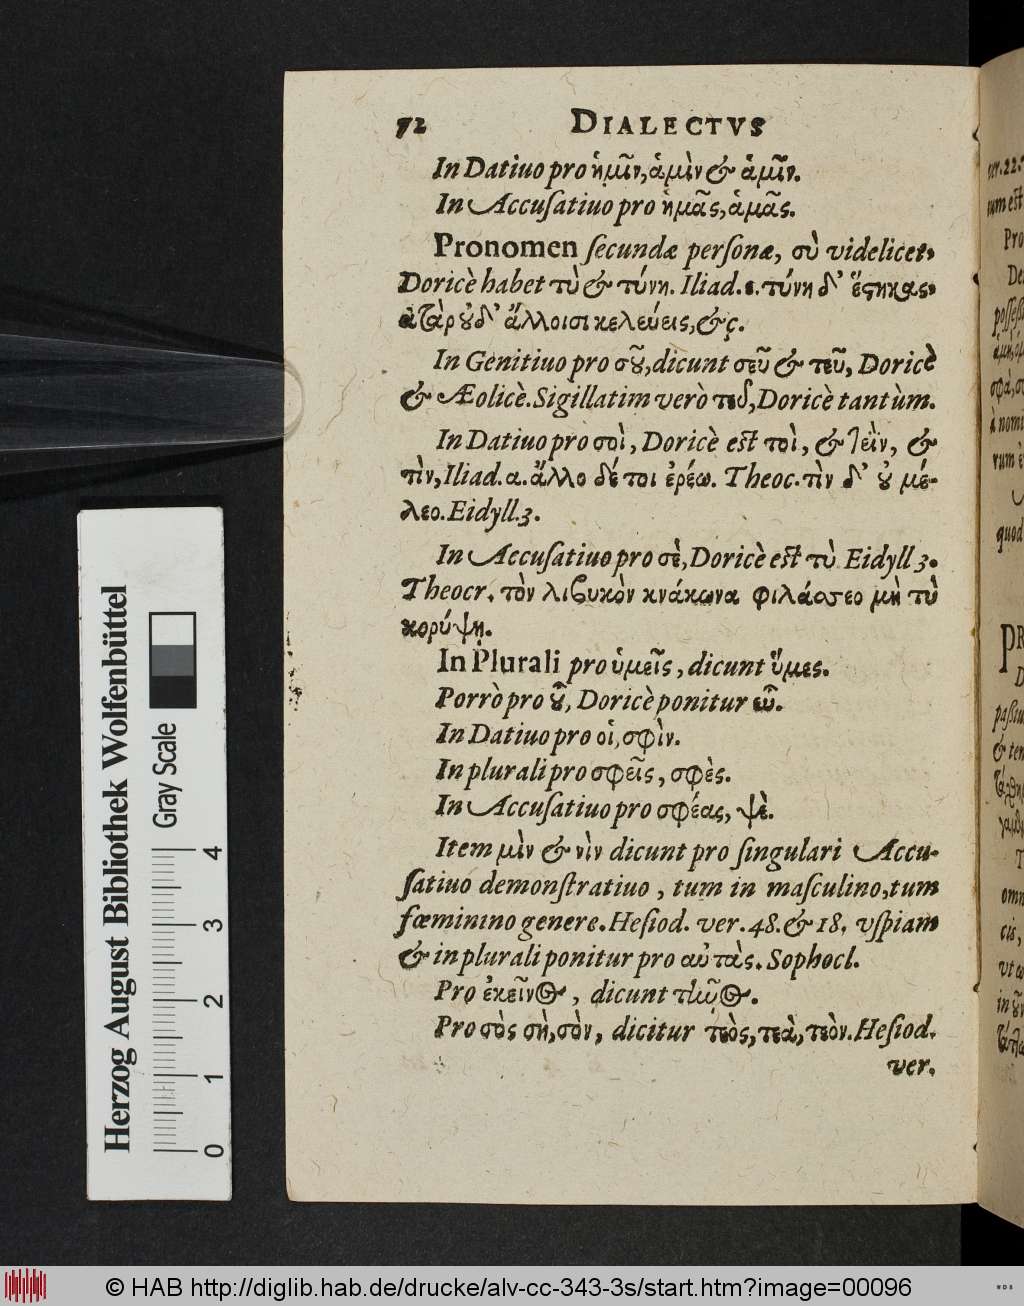 72 DIALECTVS
In Datiuo pro ἡμῖν, ἁμὶν & ἁμῖν.
In Accuſatiuo pro ἡμᾶς, ἁμᾶς.
Pronomen ſecundæ perſonæ, σὺ videlicet,
Doricè habet τὺ & τύνη. Iliad. ε. τύνη δ' ἕϛηκας,
ἀτὰρ ȣδ' ἄλλοισι κελεύεις, &c.
In Genitiuo pro σȣ͂, dicunt σεῦ & τεῦ, Doricè
& Æolicè. Sigillatim verò τεȣ͂, Doricè tantùm.
In Datiuo pro σοὶ, Doricè eſt τοὶ, & τεῒν, &
τὶν, Iliad. α. ἄλλο δέ τοι ἐρέω. Theoc. τὶν δ' ȣ̓ μέ-
λεο. Eidyll. 3.
In Accuſatiuo pro σὲ, Doricè eſt τὺ Eidyll 3.
Theocr. τὸν λιβυκὸν κνάκωνα φιλάσσεο μὴ τὺ
κορύψῃ.
In Plurali pro ὑμεῖς, dicunt ὕμες.
Porrò pro ȣ̔͂, Doricè ponitur εὗ.
In Datiuo pro οἱ, σφὶν.
In plurali pro σφεῖς, σφὲς.
In Accuſatiuo pro σφέας, ψὲ.
Item μὶν & νὶν dicunt pro ſingulari Accu-
ſatiuo demonſtratiuo, tum in maſculino, tum
fœminino genere. Heſiod. ver. 48. & 18. vſpiam
& in plurali ponitur pro αὐτὰς. Sophocl.
Pro ἐκεῖνος, dicunt τῆνος.
Pro σὸς σὴ, σὸν, dicitur τεὸς, τεὰ, τεὸν. Heſiod.
ver.
Herzog August Bibliothek Wolfenbüttel
Gray Scale
0 1 2 3 4
© HAB http://diglib.hab.de/drucke/alv-cc-343-3s/start.htm?image=00096